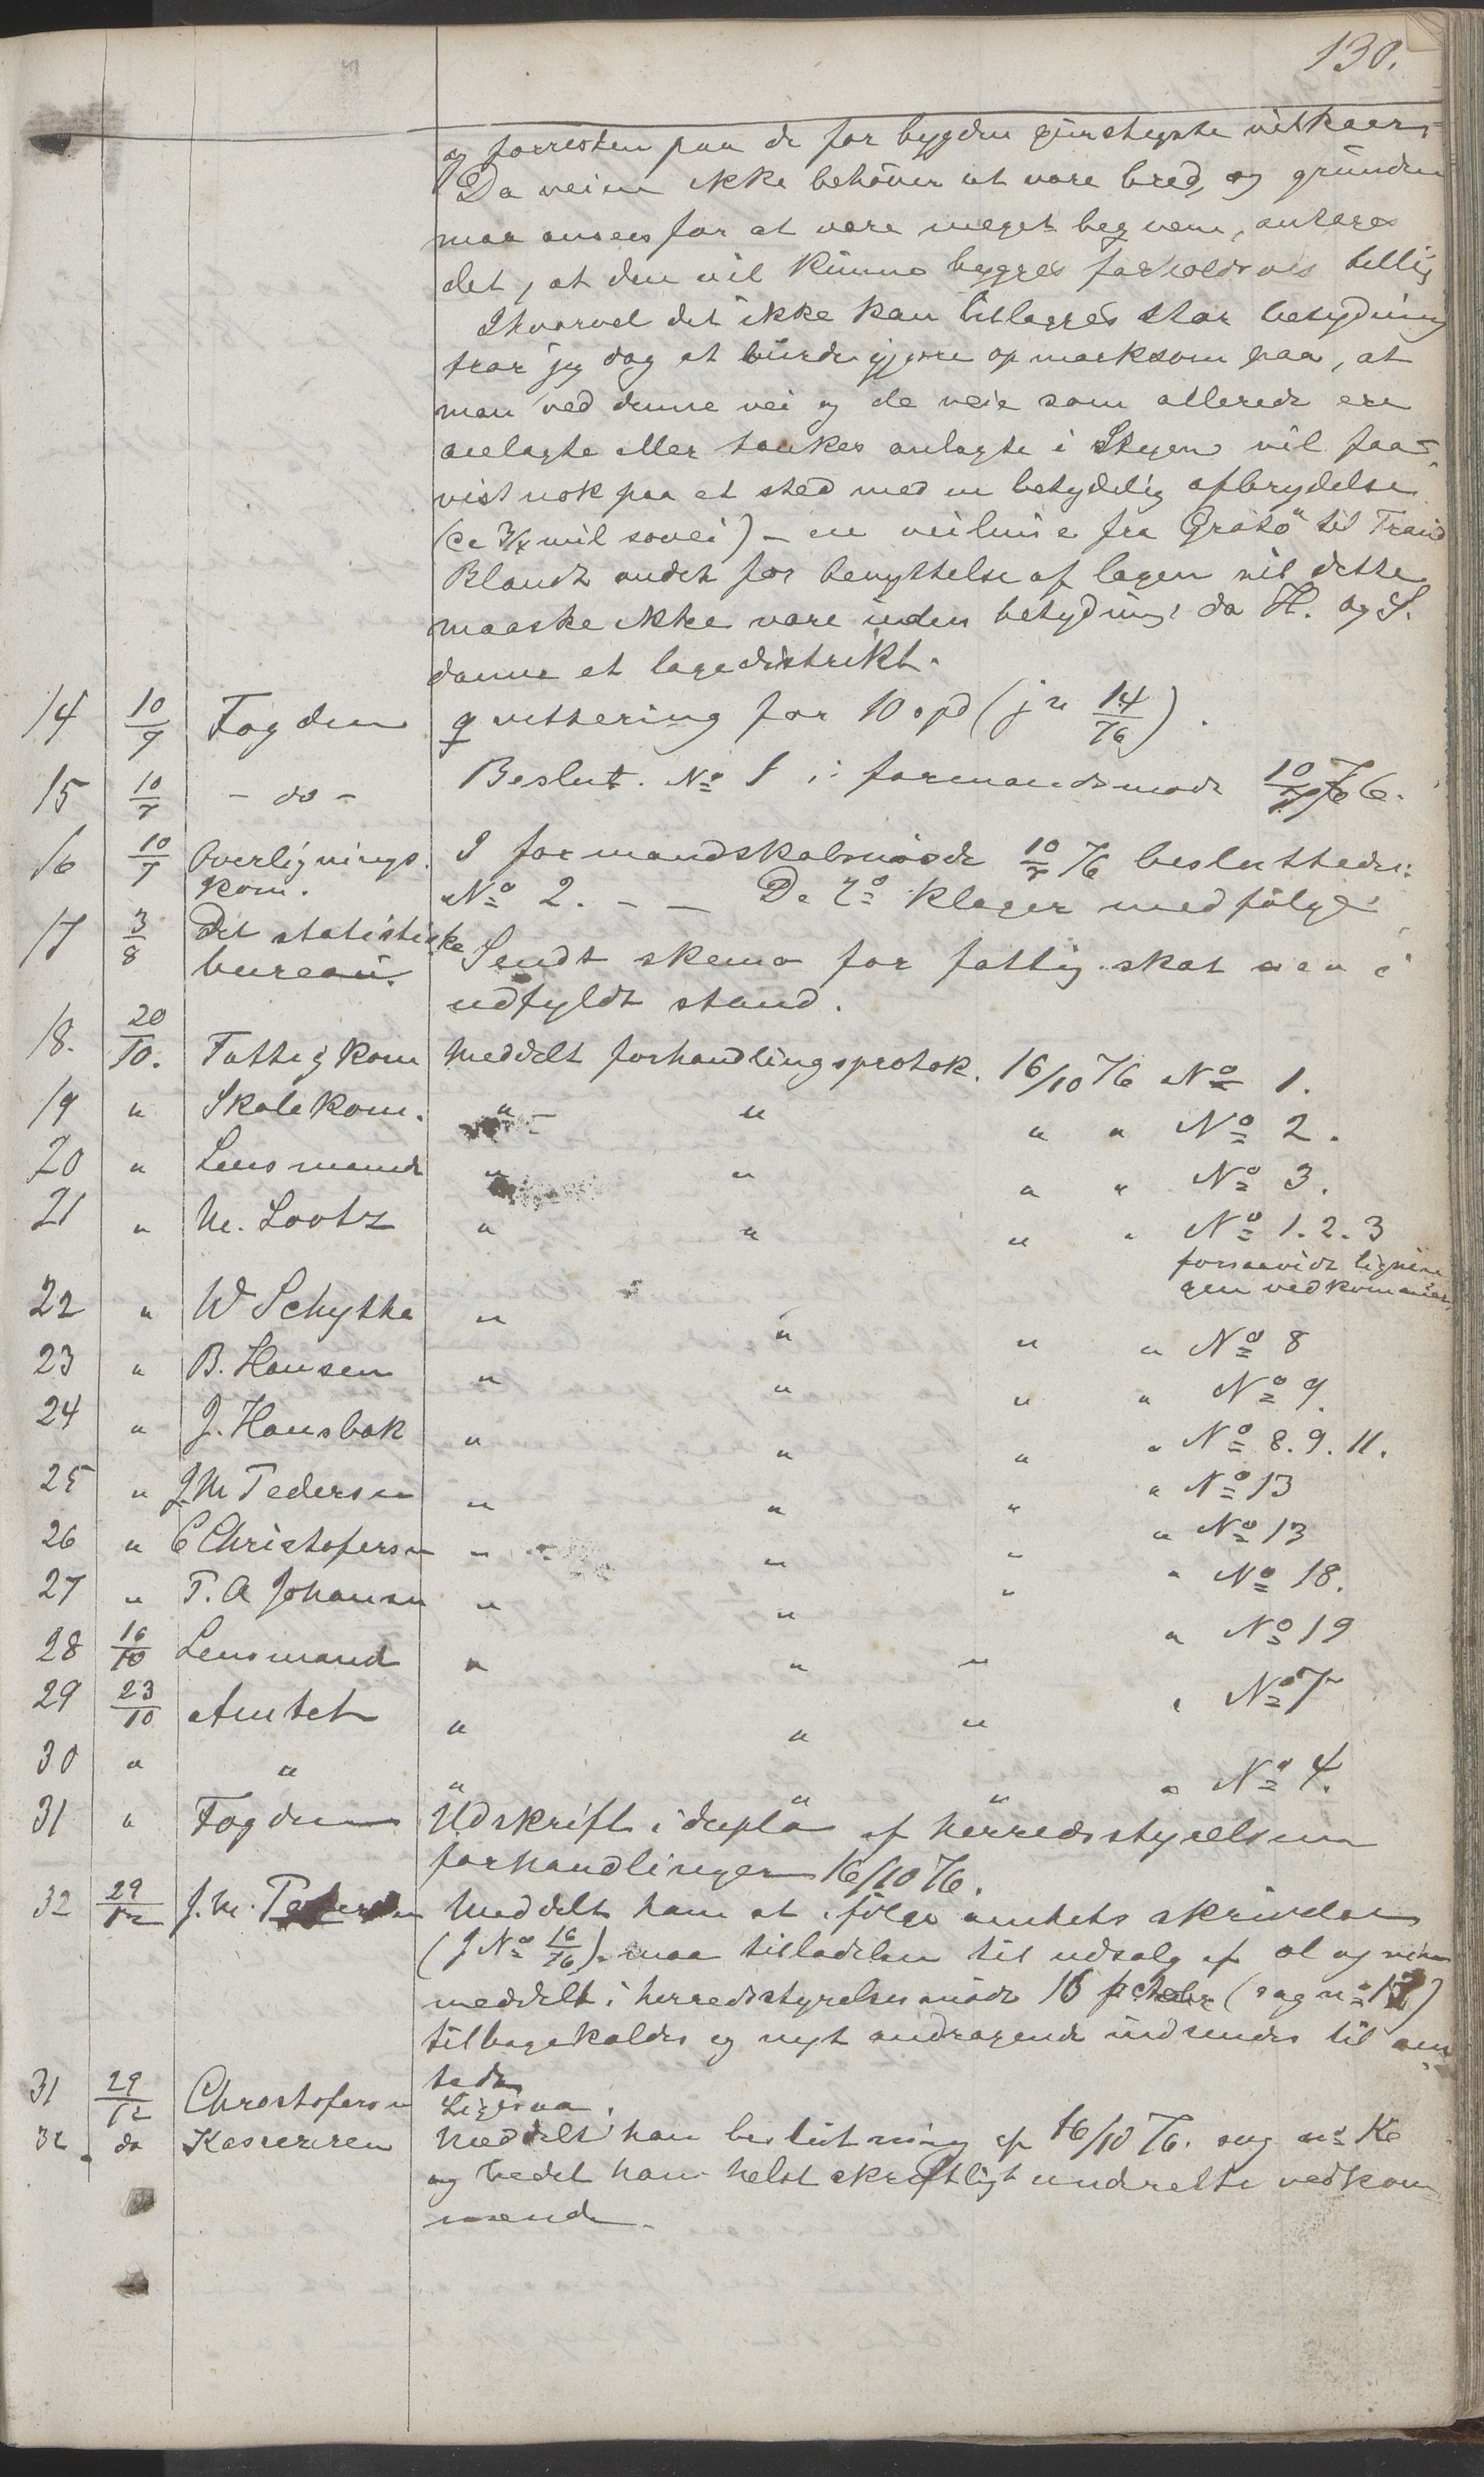 130.
og forresten paa de for bygden gunstigste vilkaar.
Da veien ikke behöver at være bred, og grunden
maa ansees for at være meget beqvem, antages
det, at den vil kunne bygges forholdsvis billig
Ihvorvel det ikke kan tillægges stor betydning
tror jeg dog at burde gjøre opmærksom paa, at
man ved denne vei og de veie som allerede ere
anlagte eller tænkes anlagte i Steigen vil faa -
vistnok paa et sted med en betydelig afbrydelse
(ca 3/4 mil søvei) - en veilinie fra Gratö til Tranö
Blandt andet for benyttelse af lægen vil dette
maaske ikke være uden betydning, da H. og S.
danne et lægedistrikt.
14 10/7 Fogden qvittering for 10 spd (jn 14/76).
15 10/7 - do - Beslut. No 1 i formandsmøde 10/7 76.
16 10/7 Overlignings. I formandskabsmøde 10/7 76 besluttedes:
kom. No 2. - - De 2 klager medfölge
17 3/8 Det statistiske Sendt skema for fattigskat men i
bureau. udfyldt stand.
18. 20/10. Fattigkom Meddelt forhandlingsprotok. 16/10 76 No 1.
19 " Skolekom. " - " " " No 2.
20 " Lensmand " " " " No 3.
21 " M. Lootz " " " " No 1. 2. 3
forsaavidt lignin
gen vedkommer.
22 " W Schytte " " " " No 8
23 " B. Hansen " " " " No 9.
24 " J. Hansbak " " " " No 8. 9. 11.
25 " J M Pedersen " " " " No 13
26 " C Christofersen " " " " No 13
27 " P. A Johansen " " " " No 18.
28 16/10 Lensmand " " " " No 19
29 23/10 Amtet " " " " No 7
30 " " " " " " No 4.
31 " Fogden Udskrift i duplo af herredsstyrelsens
forhandlinger 16/10 76.
32 29/12 J. M. Pedersen Meddelt ham at ifölge amtets skrivelse
(J No 16/76) maa tilladelsen til udsalg af øl og vin
meddelt i herredsstyrelsesmöde 16 octobr (sag no 13)
tilbagekaldes og nyt andragende indsendes til am
tet
31 29/12 Christofersen Ligesaa.
32. do Kassereren Meddelt ham beslutning af 16/10 76. sag no
og bedet ham helst skriftligt underrette vedkom
mende.